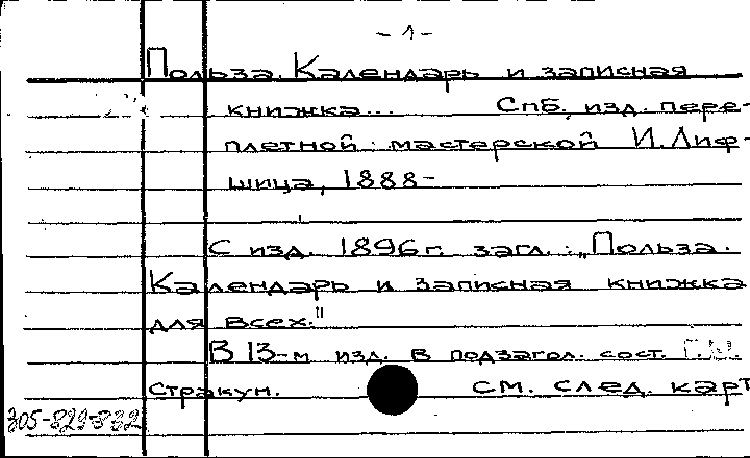 -1-
Польза. Календарь и записная
книжка... Спб, изд. пере-
плетной мастерской И. Лиф-
шица, 1888-
С изд. 1896 г. загл.: „Польза.
Календарь и записная книжка
для всех."
В 13-м изд. в подзагол. сост.
Стракун. см. след. карт
305-829-832